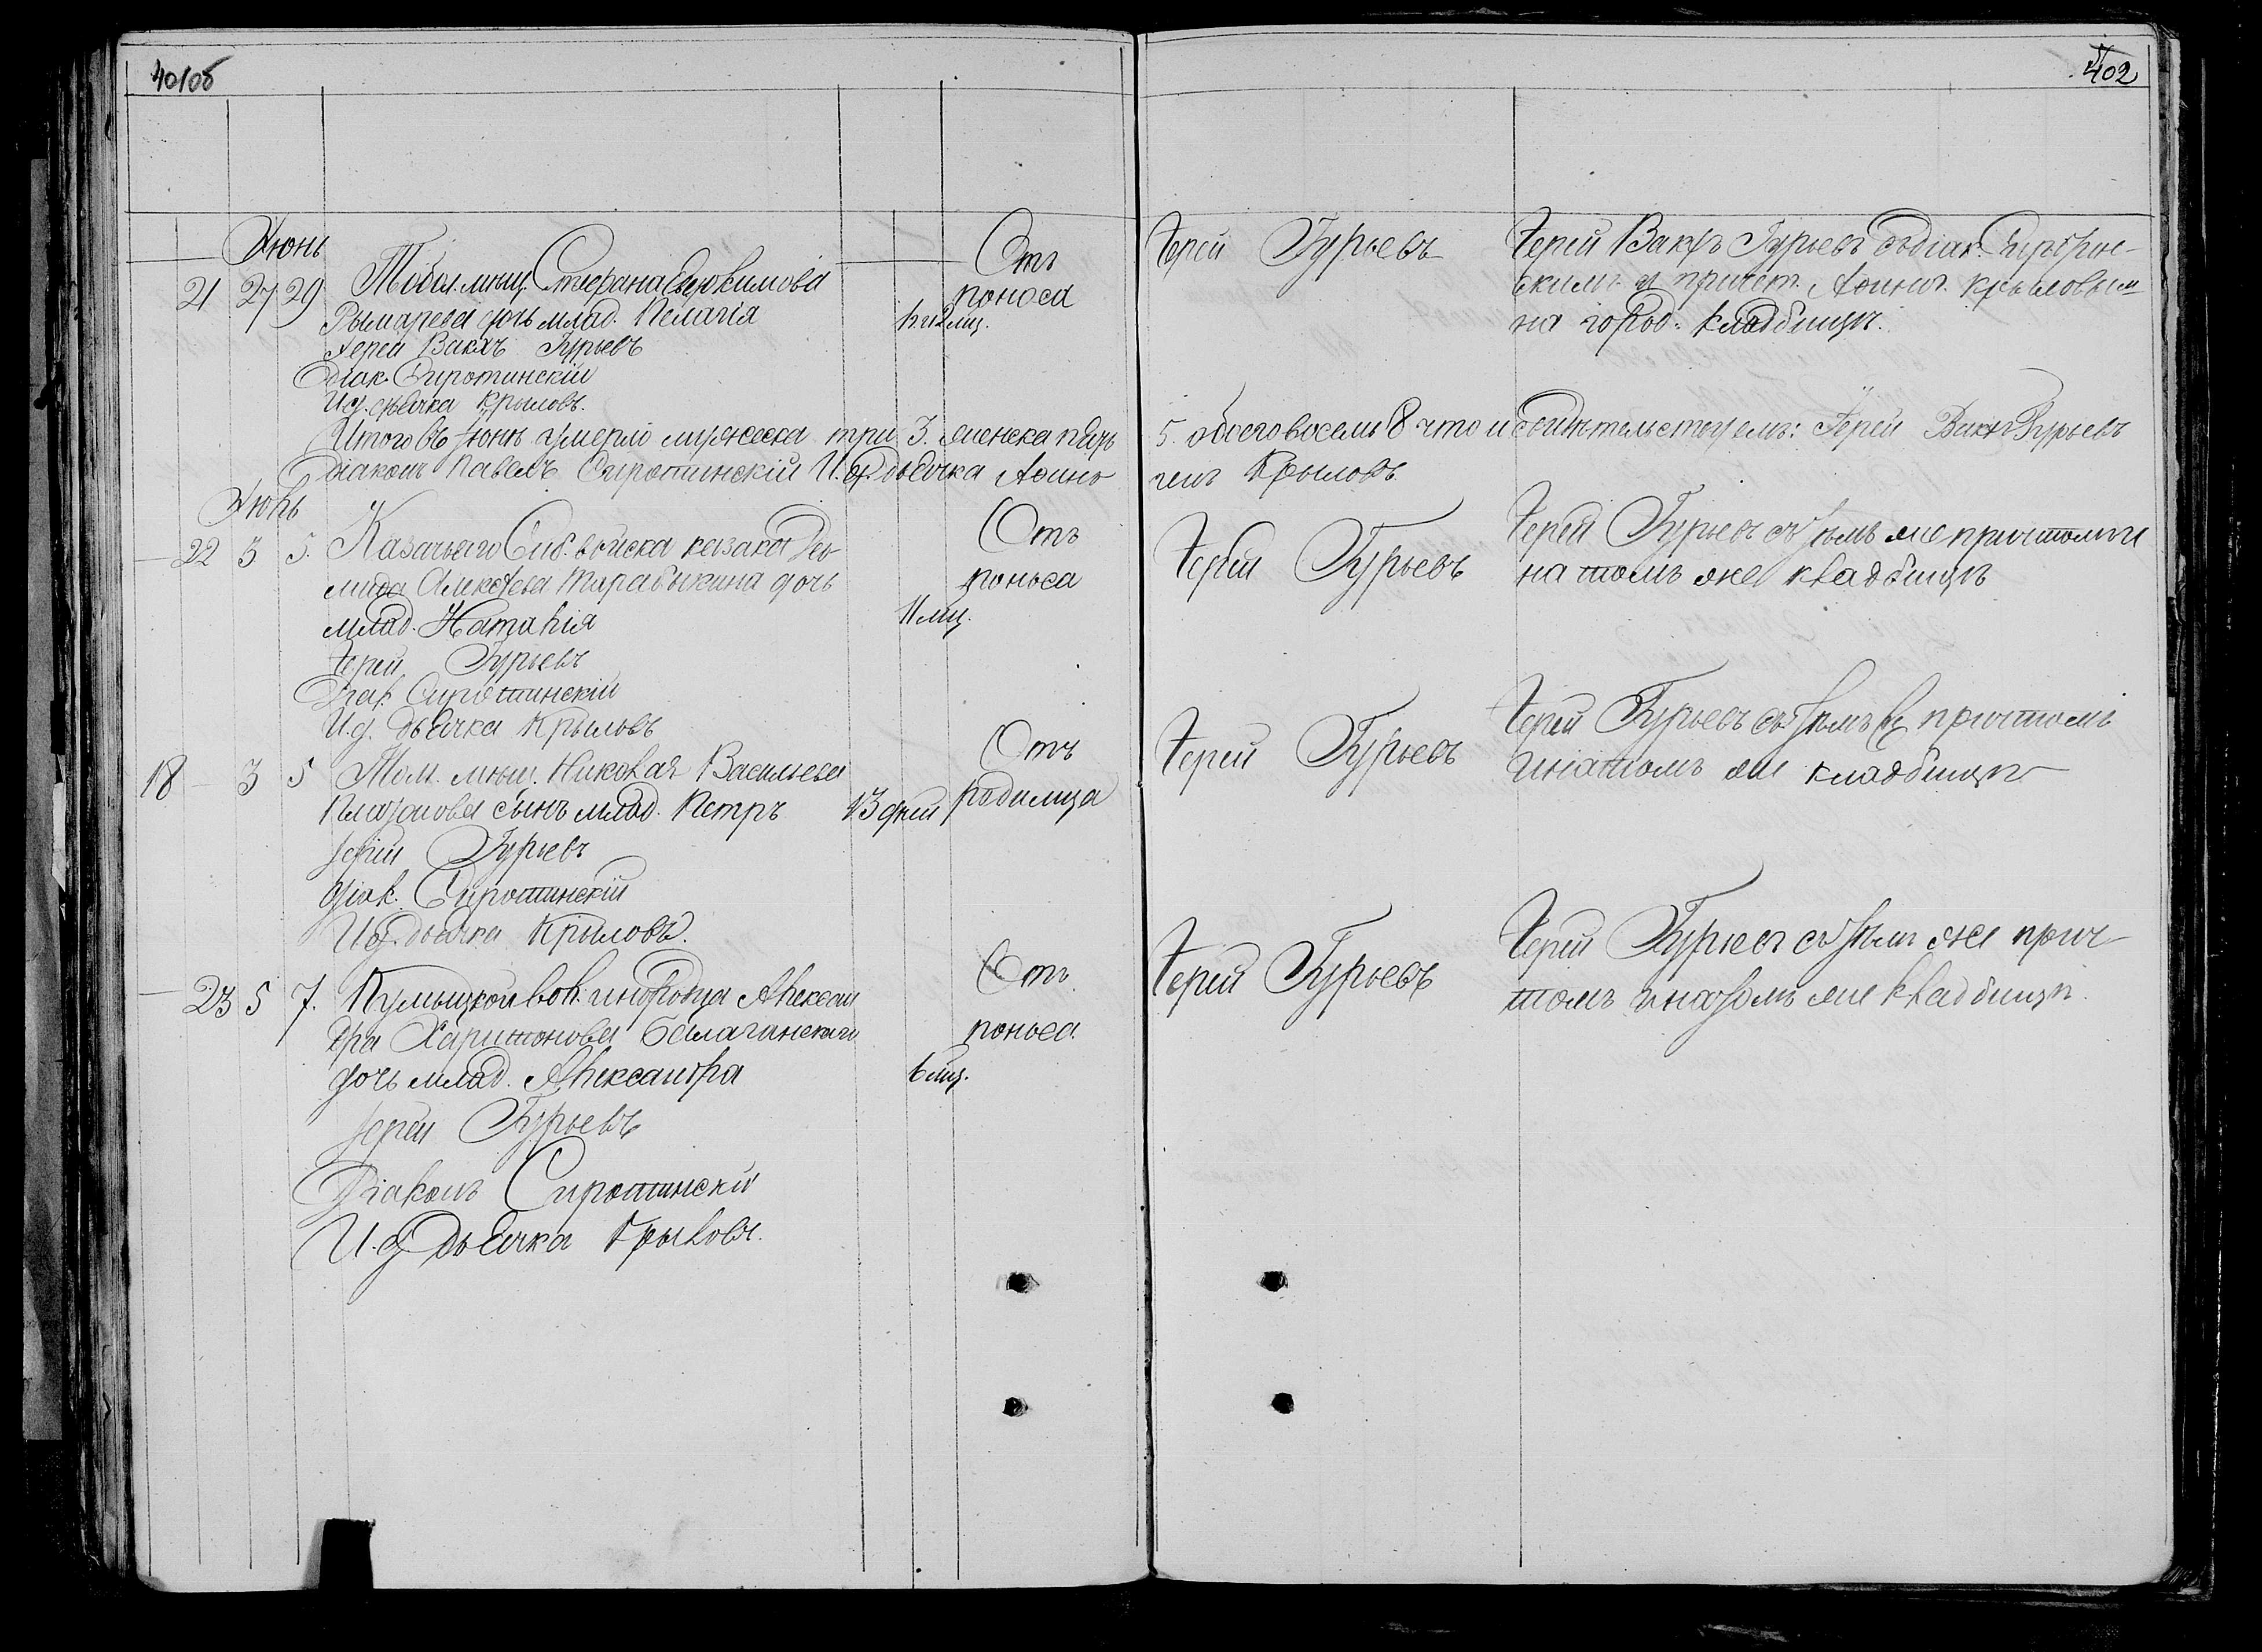 401об
402
Июнь
21 27 29 Тобол. мѣщ. Стефана Евдокимова
Рымарева дочь млад. Пелагія
Іерей Вакхъ Гурьевъ
Діак. Сиротинскій
И. д. дьячка Крыловъ.
мц.
Отъ
поноса
Іерей Гурьевъ
Іерей Вакхъ Гурьевъ съ діак. Сиротин-
скимъ и причет. Крыловым
на город. кладбищѣ.
Итого въ Іюнѣ умерло мужеска три 3. женска пять
5. обоего восемь 8 что и свидѣтельствуемъ: Іерей Вакхъ Гурьевъ
Діаконъ Павелъ Сиротинскій И. д. дьячка Аѳино-
генъ Крыловъ
Июль
22 3 5. Казачьяго Сиб. войска казака Де-
мида Алексѣева Тарабыкина дочь
млад. Наталія
Іерей Гурьевъ
Діак. Сиротинскій
И. д. дьячка Крыловъ
11 мц.
Отъ
поноса
Іерей Гурьевъ
Іерей Гурьевъ съ тѣмъ же причтомъ и
на томъ же кладбищѣ
18 3 5 Том. мѣщ. Николая Васильева
сынъ млад. Петръ
Іерей Гурьевъ
діак. Сиротинскій
И. д. дьячка Крыловъ.
13 дней
Отъ
родимца
Іерей Гурьевъ
Іерей Гурьевъ съ тѣмъ же причтомъ
и на томъ же кладбищѣ
23 5 7. вол. инородца Алексан
дра Харитонова Балаганскаго
дочь млад. Александра
Іерей Гурьевъ
Діаконъ Сиротинскій
И. д. дьячка Крыловъ.
6 мц.
Отъ
поноса.
Іерей Гурьевъ
Іерей Гурьевъ съ тѣмъ же прич-
томъ и на томъ же кладбищѣ.